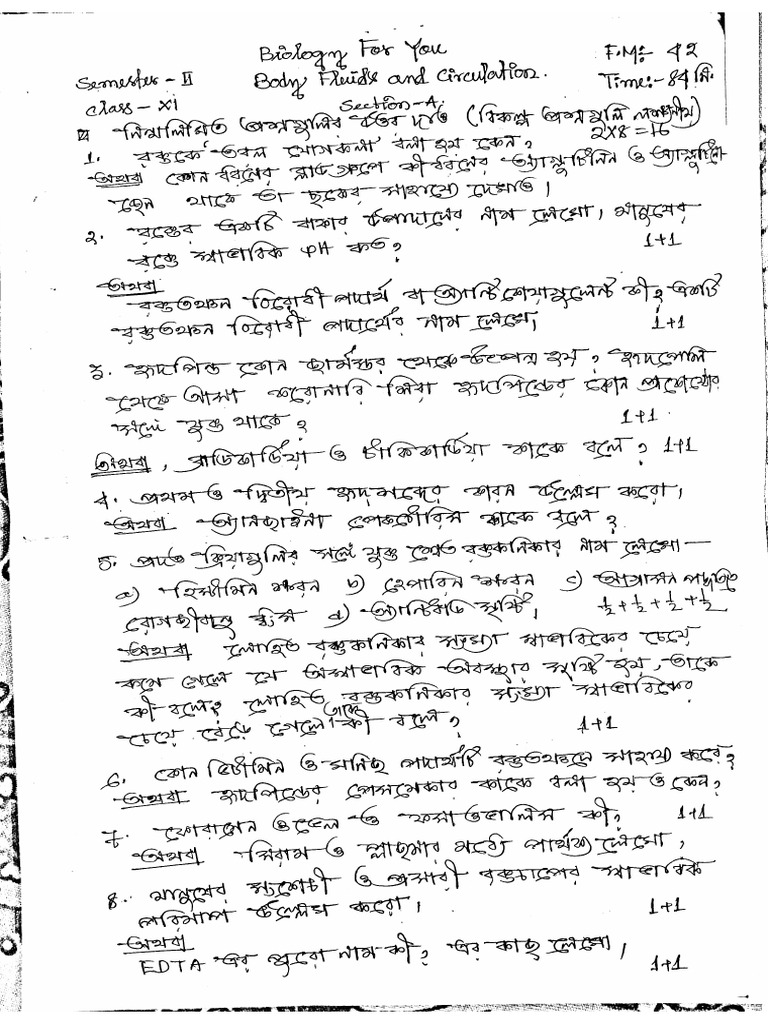 Biology For You
F.M:- 42
Semester - II
Body Fluids and Circulation.
Time:- 84 মি.
Class - XI
Section-A.
নিম্নলিখিত প্রশ্নগুলির উত্তর দাও (বিকল্প প্রশ্নগুলি লক্ষণীয়)
2×8=16
1. রক্তকে তরল যোগকলা বলা হয় কেন?
অথবা কোন ধরনের ব্লাড গ্রুপে কী ধরনের অ্যাগ্লুটিনিন ও অ্যাগ্লুটিনো
জেন থাকে তা ছকের সাহায্যে দেখাও।
২. রক্তের একটি বাফার উপাদানের নাম লেখো, মানুষের
রক্তে স্বাভাবিক pH কত? 1+1
অথবা
রক্ততঞ্চন বিরোধী পদার্থ বা অ্যান্টিকোয়াগুলেন্ট কী? একটি
রক্ততঞ্চন বিরোধী পদার্থের নাম লেখো, 1+1
3. হৃদপিন্ড কোন ভ্রূণস্তর থেকে উৎপন্ন হয়? হৃদপেশি
থেকে আসা করোনারি শিরা হৃদপিন্ডের কোন প্রকোষ্ঠের
সঙ্গে যুক্ত থাকে? 1+1
অথবা, ব্রাডিকার্ডিয়া ও ট্যাকিকার্ডিয়া কাকে বলে? 1+1
4. প্রথম ও দ্বিতীয় হৃদশব্দের কারন উল্লেখ করো,
অথবা অ্যানজাইনা পেকটোরিস কাকে বলে?
5. প্রদত্ত ক্রিয়াগুলির সঙ্গে যুক্ত শ্বেত রক্তকনিকার নাম লেখো—
a) হিস্টামিন ক্ষরন b) হেপারিন ক্ষরন c) আগ্রাসন পদ্ধতিতে
রোগজীবাণু ধ্বংস d) অ্যান্টিবডি সৃষ্টি, ½+½+½+½
অথবা লোহিত রক্তকনিকার সংখ্যা স্বাভাবিকের চেয়ে
কমে গেলে যে অস্বাভাবিক অবস্থার সৃষ্টি হয়, তাকে
কী বলে? লোহিত রক্তকনিকার সংখ্যা স্বাভাবিকের
চেয়ে বেড়ে গেলে তাকে কী বলে? 1+1
6. কোন ভিটামিন ও খনিজ পদার্থটি রক্ততঞ্চনে সাহায্য করে?
অথবা হৃদপিন্ডের পেসমেকার কাকে বলা হয় ও কেন?
7. ফোরামেন ওভেল ও ফসা ওভালিস কী? 1+1
অথবা সিরাম ও প্লাজমার মধ্যে পার্থক্য লেখো,
8. মানুষের সংকোচী ও প্রসারী রক্তচাপের স্বাভাবিক
পরিমাপ উল্লেখ করো, 1+1
অথবা
EDTA এর পুরো নাম কী? এর কাজ লেখো, 1+1